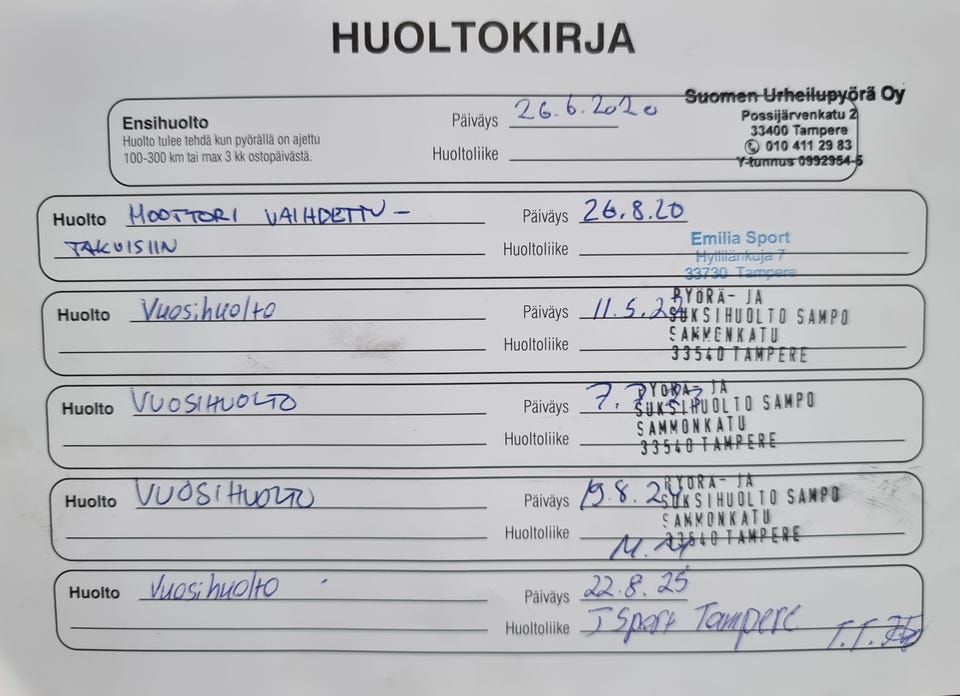 HUOLTOKIRJA
Ensihuolto
Huolto tulee tehdä kun pyörällä on ajettu
100-300 km tai max 3 kk ostopäivästä.
Päiväys 26.6.2020
Huoltoliike
Suomen Urheilupyörä Oy
Possijärvenkatu 2
33400 Tampere
010 411 29 83
Y-tunnus 0992954-5
Huolto MOOTTORI VAIHDETTU -
TAKUISIIN
Päiväys 26.8.20
Huoltoliike
Emilia Sport
Hyllilänkuja 7
33730 Tampere
Huolto Vuosihuolto
Päiväys 11.5.22
Huoltoliike
PYÖRÄ- JA
SUKSIHUOLTO SAMPO
SAMMENKATU
33540 TAMPERE
Huolto VUOSIHUOLTO
Päiväys 7.7.23
Huoltoliike
PYÖRÄ- JA
SUKSIHUOLTO SAMPO
SAMMONKATU
33540 TAMPERE
Huolto VUOSIHUOLTO
Päiväys 19.8.24
Huoltoliike
PYÖRÄ- JA
SUKSIHUOLTO SAMPO
SAMMONKATU
33540 TAMPERE
Huolto Vuosihuolto
Päiväys 22.8.25
Huoltoliike J Sport Tampere
T.T.